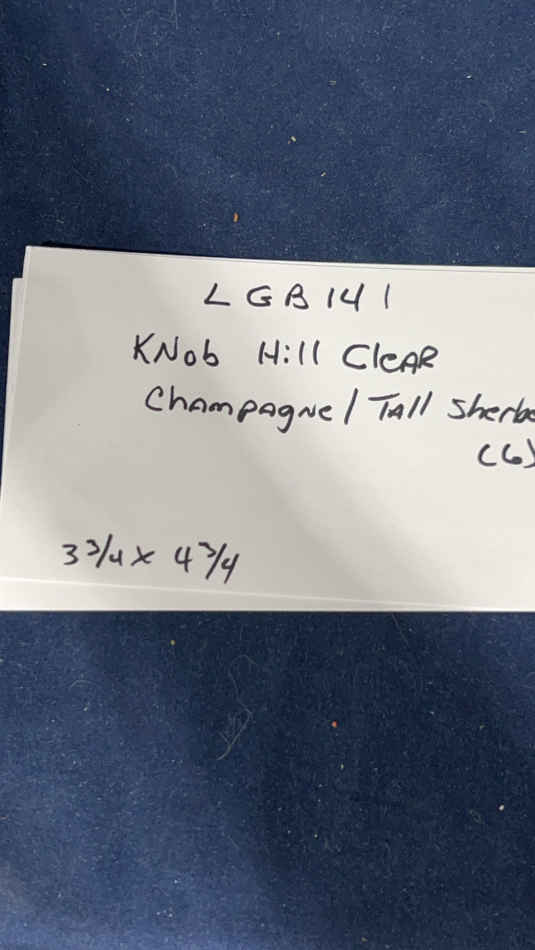 LGB141
KNob Hill Clear
Champagne / Tall Sherbe
(6)
3 3/4 x 4 3/4